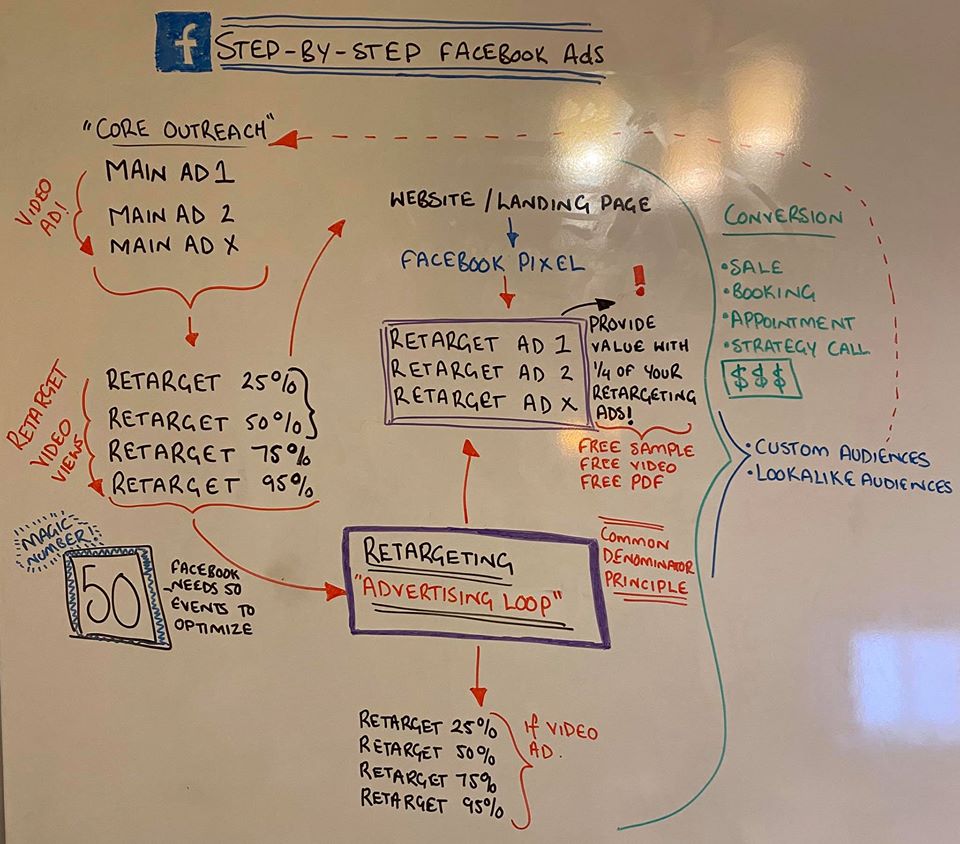 f
STEP-BY-STEP FACEBOOK ADS
"CORE OUTREACH"
MAIN AD 1
MAIN AD 2
MAIN AD X
VIDEO
AD!
RETARGET 25%
RETARGET 50%
RETARGET 75%
RETARGET 95%
RETARGET
VIDEO
VIEWS
MAGIC
NUMBER!
50
FACEBOOK
NEEDS 50
EVENTS TO
OPTIMIZE
WEBSITE / LANDING PAGE
FACEBOOK PIXEL
RETARGET AD 1
RETARGET AD 2
RETARGET AD X
!
PROVIDE
VALUE WITH
1/4 OF YOUR
RETARGETING
ADS!
FREE SAMPLE
FREE VIDEO
FREE PDF
RETARGETING
"ADVERTISING LOOP"
COMMON
DENOMINATOR
PRINCIPLE
RETARGET 25%
RETARGET 50%
RETARGET 75%
RETARGET 95%
If VIDEO
AD.
CONVERSION
• SALE
• BOOKING
• APPOINTMENT
• STRATEGY CALL
$$$
• CUSTOM AUDIENCES
• LOOKALIKE AUDIENCES